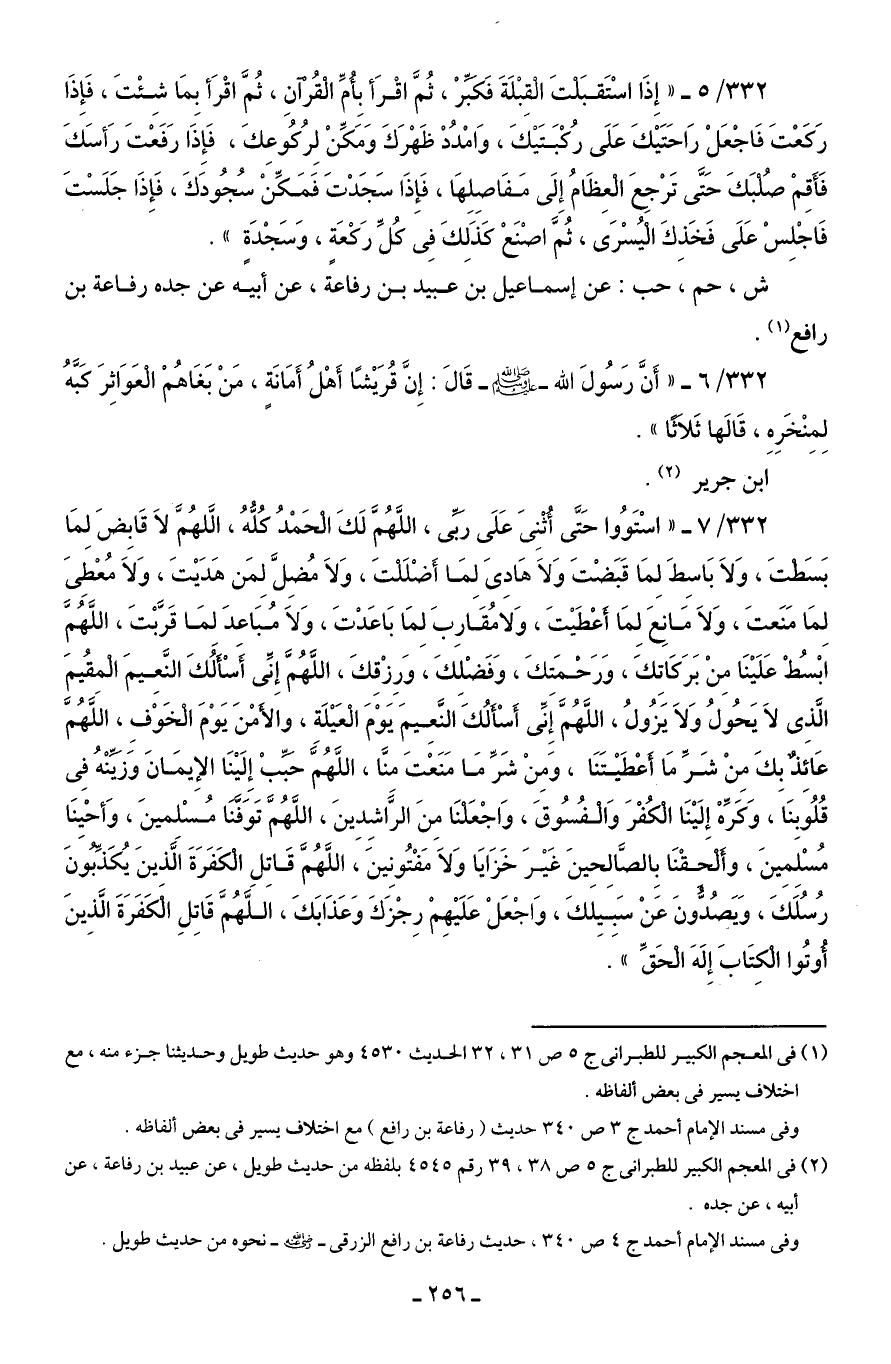 ٣٣٢/ ٥ ـ « إِذَا اسْتَقْبَلْتَ الْقِبْلَةَ فَكَبِّرْ ، ثُمَّ اقْرَأ بِأُمِّ الْقُرْآنِ ، ثُمَّ اقْرَأ بِمَا شِئْتَ ، فَإِذَا
رَكَعْتَ فَاجْعَلْ رَاحَتَيْكَ عَلَى رُكْبَتَيْكَ ، وَامْدُدْ ظَهْرَكَ وَمَكِّنْ لِرُكُوعِكَ ، فَإِذَا رَفَعْتَ رَأسَكَ
فَأَقِمْ صُلْبَكَ حَتَّى تَرْجِعَ الْعِظَامُ إِلَى مَفَاصِلِهَا ، فَإِذَا سَجَدْتَ فَمَكِّنْ سُجُودَكَ ، فَإِذَا جَلَسْتَ
فَاجْلِسْ عَلَى فَخِذِكَ الْيُسْرَى ، ثُمَّ اصْنَعْ كَذَلِكَ فِى كُلِّ رَكْعَةٍ ، وَسَجْدَةٍ » .
ش ، حم ، حب : عن إسماعيل بن عبيد بن رفاعة ، عن أبيه عن جده رفاعة بن
رافع(١) .
٣٣٢/ ٦ ـ « أَنَّ رَسُولَ الله ـ ﷺ ـ قَالَ : إِنَّ قُرَيْشًا أَهْلُ أَمَانَةٍ ، مَنْ بَغَاهُمْ الْعَوَاثِرَ كَبَّهُ
لِمِنْخَرِهِ ، قَالَهَا ثَلاَثًا » .
ابن جرير (٢) .
٣٣٢/ ٧ ـ « اسْتَوُوا حَتَّى أُثْنِىَ عَلَى رَبِّى ، اللَّهُمَّ لَكَ الْحَمْدُ كُلُّهُ ، اللَّهُمَّ لاَ قَابِضَ لِمَا
بَسَطْتَ ، وَلاَ بَاسِطَ لِمَا قَبَضْتَ وَلاَ هَادِىَ لِمَا أَضْلَلْتَ ، وَلاَ مُضِلَّ لِمَن هَدَيْتَ ، وَلاَ مُعْطِىَ
لِمَا مَنَعتَ ، وَلاَ مَانِعَ لِمَا أَعْطَيْتَ ، وَلامُقَارِبَ لِمَا بَاعَدْتَ ، وَلاَ مُبَاعِدَ لِمَا قَرَّبْتَ ، اللَّهُمَّ
ابْسُطْ عَلَيْنَا مِنْ بَرَكَاتِكَ ، وَرَحْمَتِكَ ، وَفَضْلِكَ ، وَرِزْقِكَ ، اللَّهُمَّ إِنِّى أَسْأَلُكَ النَّعِيمَ الْمُقِيمَ
الَّذِى لاَ يَحُولُ وَلاَ يَزُولُ ، اللَّهُمَّ إِنِّى أَسْأَلُكَ النَّعِيمَ يَوْمَ الْعَيْلَةِ ، والأَمْنَ يَوْمَ الْخَوْفِ ، اللَّهُمَّ
عَائِذٌ بِكَ مِنْ شَرِّ مَا أَعْطَيْتَنَا ، وَمِنْ شَرِّ مَا مَنَعْتَ مِنَّا ، اللَّهُمَّ حَبِّبْ إِلَيْنَا الإِيمَانَ وَزَيِّنْهُ فِى
قُلُوبِنَا ، وَكَرِّهْ إِلَيْنَا الْكُفْرَ وَالْفُسُوقَ ، وَاجْعَلْنَا مِنَ الرَّاشِدِينَ ، اللَّهُمَّ تَوَفَّنَا مُسْلِمِينَ ، وَأَحْيِنَا
مُسْلِمِينَ ، وأَلْحِقْنَا بِالصَّالِحِينَ غَيْرَ خَزَايَا وَلاَ مَفْتُونِينَ ، اللَّهُمَّ قَاتِلِ الْكَفَرَةَ الَّذِينَ يُكَذِّبُونَ
رُسُلَكَ ، وَيَصُدُّونَ عَنْ سَبِيلِكَ ، وَاجْعَلْ عَلَيْهِمْ رِجْزَكَ وَعَذَابَكَ ، اللَّهُمَّ قَاتِلِ الْكَفَرَةَ الَّذِينَ
أُوتُوا الْكِتَابَ إِلَهَ الْحَقِّ » .
(١) فى المعجم الكبير للطبرانى ج ٥ ص ٣١ ، ٣٢ الحديث ٤٥٣٠ وهو حديث طويل وحديثنا جزء منه ، مع
اختلاف يسير فى بعض ألفاظه .
وفى مسند الإمام أحمد ج ٣ ص ٣٤٠ حديث ( رفاعة بن رافع ) مع اختلاف يسير فى بعض ألفاظه .
(٢) فى المعجم الكبير للطبرانى ج ٥ ص ٣٨ ، ٣٩ رقم ٤٥٤٥ بلفظه من حديث طويل ، عن عبيد بن رفاعة ، عن
أبيه ، عن جده .
وفى مسند الإمام أحمد ج ٤ ص ٣٤٠ ، حديث رفاعة بن رافع الزرقى ـ رضي الله عنه ـ نحوه من حديث طويل .
ـ ٢٥٦ ـ